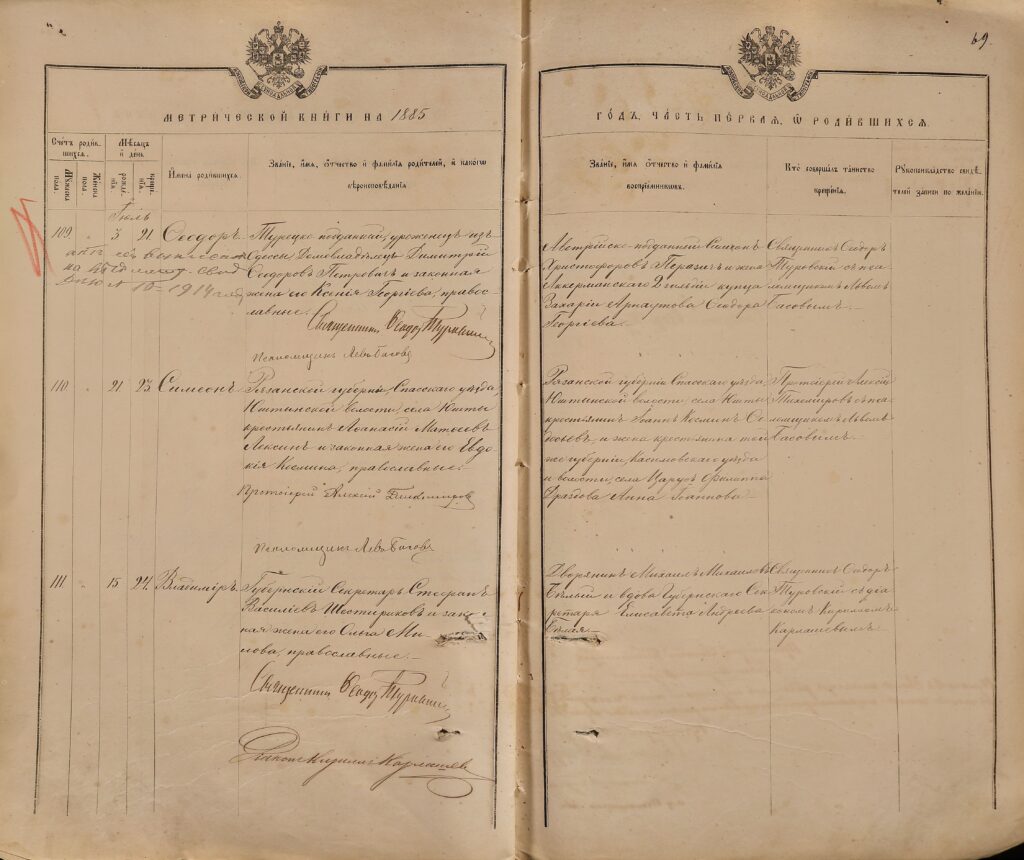 69.
МЕТРИЧЕСКОЙ КНИГИ НА 1885
ГОДЪ, ЧАСТЬ ПЕРВАЯ, Ѡ РОДИВШИХСЯ.
Счетъ роди-
вшихся.
Мужеска
пола.
Женска
пола.
Мѣсяцъ
и день
рожде-
нія.
креще-
нія.
Имена родившихся.
Званіе, имя, отчество и фамилія родителей, и какого
вѣроисповѣданія.
Званіе, имя отчество и фамилія
воспріемниковъ.
Кто совершалъ таинство
крещенія.
Рукоприкладство свидѣ-
телей записи по желанію.
Іюль
109. 3 21. Ѳеодоръ
Турецко-подданный, уроженецъ изъ
Одессы Домовладѣлецъ Димитрій
Ѳеодоровъ Петровичъ и законная
жена его Ксенія Георгіева, православные.
Священникъ Ѳеодоръ Туровскій
Псаломщикъ Левъ Басовъ
Австрійско-подданный Симеонъ
Христофоровъ и жена
Аккерманскаго 2 гильдіи купца
Захаріи Арнаутова Ѳеодора
Георгіева.
Священникъ Ѳеодоръ
Туровскій съ пса-
ломщикомъ Львомъ
Басовымъ.
актъ
на
1914 года
110. 21 23 Симеонъ
Рязанской губерніи, Спасскаго уѣзда,
Ижтынской волости, села Ижты
крестьянинъ Аѳанасій Матѳеевъ
Алексинъ и законная жена его Евдо-
кія Космина, православные.
Протоіерей Алексій
Псаломщикъ Левъ Басовъ
Рязанской губерніи, Спасскаго уѣзда,
Ижтынской волости, села Ижты
крестьянинъ Іоаннъ Косминъ
и жена крестьянина той
же губерніи, Касимовскаго уѣзда
и волости, села Филиппа
Дроздова Анна Іоаннова.
Протоіерей Алексій
съ пса-
ломщикомъ Львомъ
Басовымъ.
111. 15 24. Владиміръ
Губернскій Секретарь Стефанъ
Василіевъ Шостириковъ и закон-
ная жена его Ольга
православные.
Священникъ Ѳеодоръ Туровскій
Діаконъ Кириллъ Карлашевъ
Дворянинъ Михаилъ Михаиловъ
Бѣлый и вдова Губернскаго Сек-
ретаря Елисавета Андреева
Бѣлая.
Священникъ Ѳеодоръ
Туровскій съ діа-
кономъ Кирилломъ
Карлашевымъ